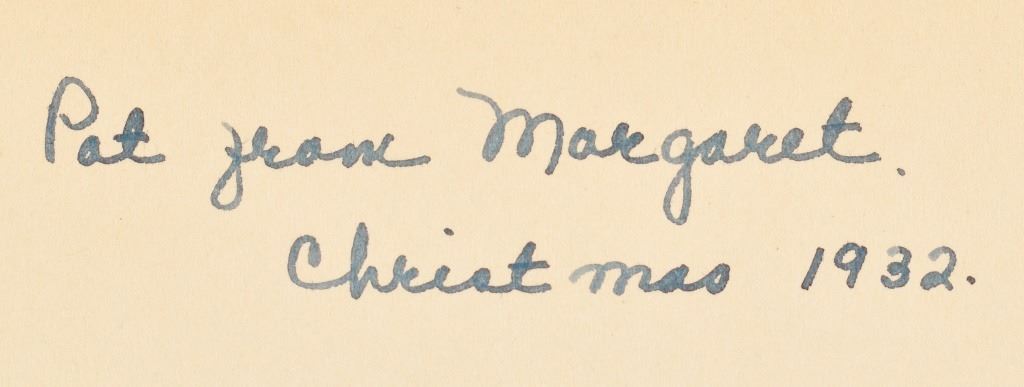 Pat from Margaret.
Christmas 1932.